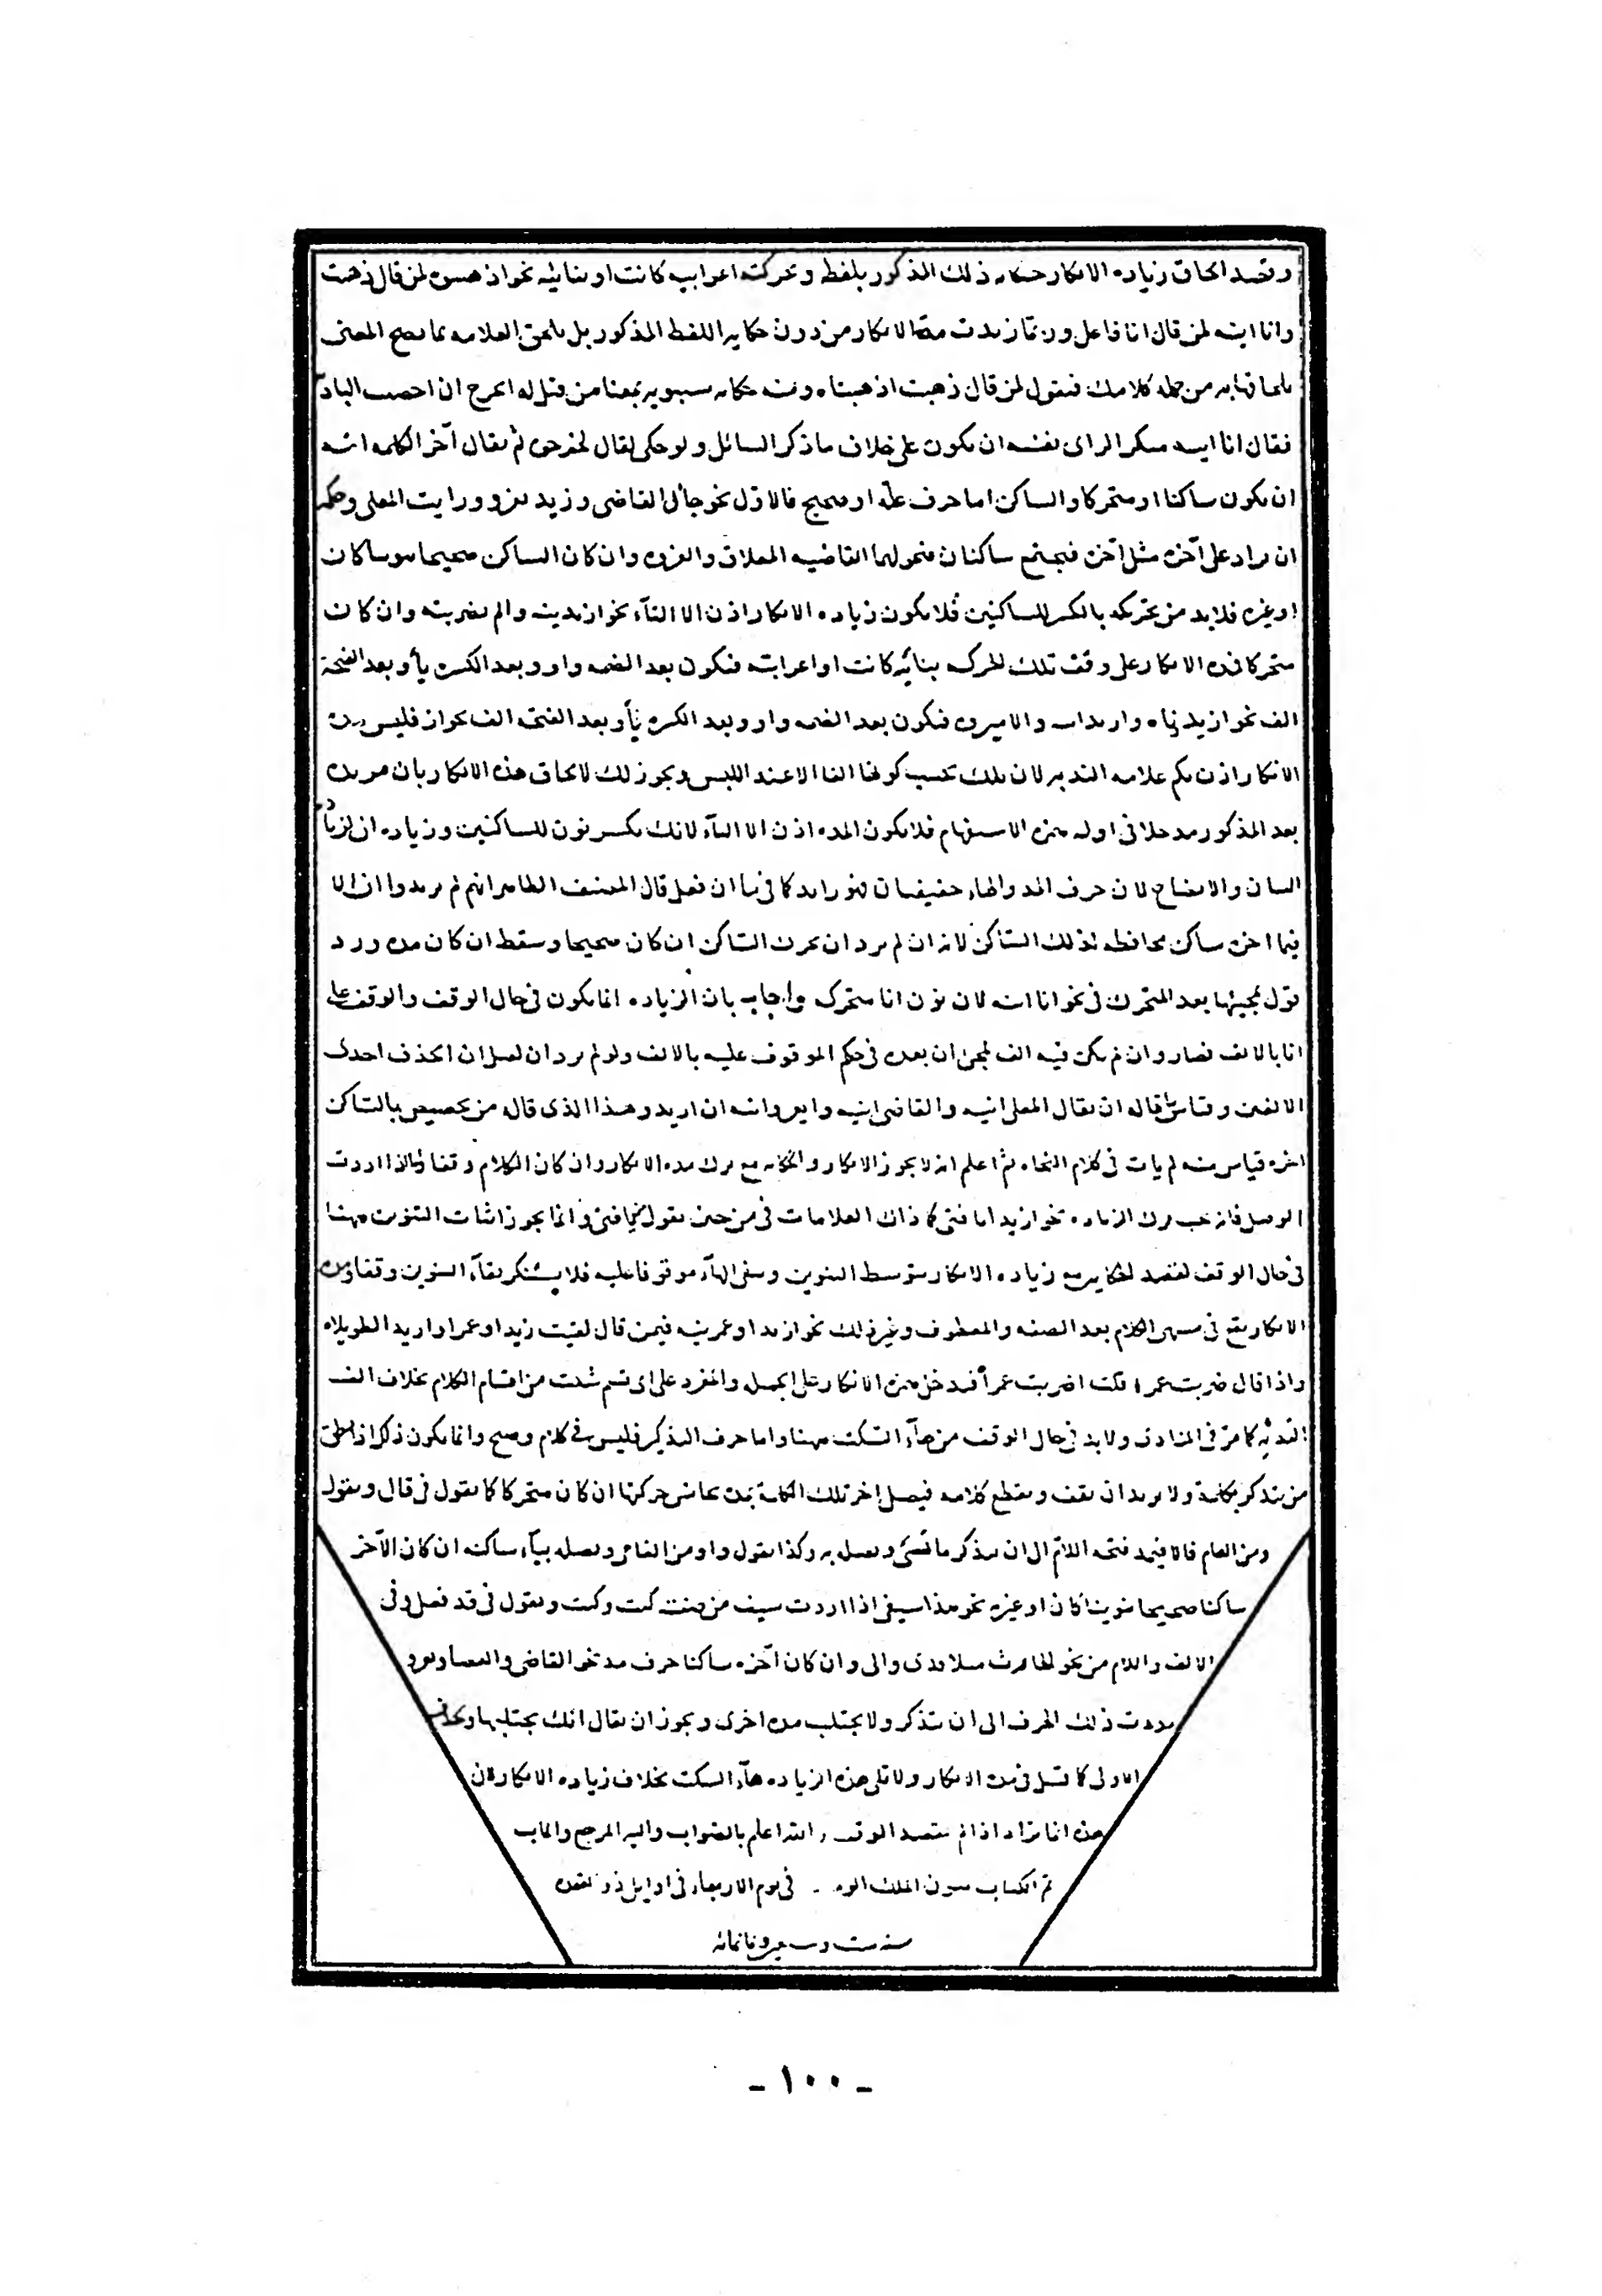 وقصد الحاق زياده الانكار حكايه ذلك المذكور بلفظه وحركته اعرابيه كانت او بنائيه نحو اذهبتوه لمن قال ذهبت
وانا انيه لمن قال انا فاعل وربما زيدت مدة الانكار من دون حكايه اللفظ المذكور بل يلحق العلامه بما يصح المعنى
بالحاقها به من جمله كلامك فتقول لمن قال ذهبت اذهبتاه ومنه حكايه سيبويه سمعنا من قيل له اتخرج ان اخصبت الباديه
فقال انا انيه منكر الراى نفسه ان يكون على خلاف ما ذكر السائل ولو حكى لقال ثم يقال آخر الكلمه اما
ان يكون ساكنا او متحركا والساكن اما حرف علة او صحيح فالاول نحو جاءنى القاضى وزيد يغزو ورايت المعلى وحكمه
ان يزاد على آخره مثل آخره فيجتمع ساكنان القاضيه المعلاه والغزوه وان كان الساكن صحيحا تنوينا كان
او غيره فلا بد من تحريكه بالكسر للساكنين فلا يكون زياده الانكار اذن الا الياء نحو ازيدنيه والم تضربيه وان كان
متحركا فمده الانكار على وفق تلك الحركه بنائيه كانت او اعرابيه فيكون بعد الضمه واو وبعد الكسره ياء وبعد الفتحة
الف نحو ازيدنيه والاميروه فيكون بعد الضمه واو وبعد الكسره ياء وبعد الفتحه الف فليس مده
الانكار اذن كم علامه الندبه لان تلك يجب كونها الفا الا عند اللبس ويجوز لك الحاق هذه الانكار بان مزيده
بعد المذكور مدخلا فى اوله همزه الاستفهام فلا يكون المده اذن الا الياء لانك تكسر نون للساكنين وزياده ان لزياده
البيان والايضاح لان حرف المد والهاء خفيفان فزيد كما فى ما ان فعل قال المصنف الظاهر انهم لم يزيدوا ان الا
فيما اخره ساكن محافظه لذلك الساكن لانه ان لم يزد ان يحرك الساكن ان كان صحيحا وسقط ان كان مده ورد
قول بمجيئها بعد المتحرك فى نحو انا انيه لان نون انا متحرك واجاب بان الزياده انما يكون فى حال الوقف والوقف على
انا بالالف فصار وان لم يكن فيه الف لمجئ ان بعده فى حكم الموقوف عليه بالالف ولو لم يزد ان لحذف احدى
الالفين وقياس ما قاله ان يقال المعلى انيه والقاضى انيه وهذا الذى قاله من تخصيص بالساكن
اخره قياس منه لم يات فى كلام النحاه ثم اعلم انه لا يجوز الانكار والحكايه مع ترك مده الانكار وان كان الكلام وقفا واما اذا اردت
الوصل فانه يجب ترك الزياده نحو ازيدا يا فتى كما ذاك العلامات فى من حين تقول من يا فتى وانما يجوز اثبات التنوين ههنا
فى حال الوقف لقصد الحكايه مع زياده الانكار بتوسط التنوين وبقى الهاء موقوفا عليه فلا يستنكر بقاء التنوين وقفا ومده
الانكار يقع فى منتهى الكلام بعد الصفه والمعطوف وغير ذلك نحو ازيدا وعمرنيه فيمن قال لقيت زيدا وعمرا وازيد الطويلاه
واذا قال ضربت عمرا قلت اضربت عمراه فيدخل همزه الانكار على الجمل والمفرد على اى قسم شئت من اقسام الكلام بخلاف الف
الندبه كما مر فى المنادى ولا بد فى حال الوقف من هاء السكت ههنا واما حرف التذكير فليس فى كلام فصيح وانما يكون ذلك اذا نطق
من يتذكر بكلمة ولا يريد ان يقف ويقطع كلامه فيصل اخر تلك الكلمة بمده تجانس حركتها ان كان متحركا كما يقول فى قال ويقول
ومن العام قالا فيمد فتحه اللام الى ان يتذكر ما نسى ويصل به وكذا يقول واو من العامى ويصله بياء ساكنه ان كان الآخر
ساكنا صحيحا تنوينا كان او غيره نحو هذا سيفنى اذا اردت سيف من صفته كيت وكيت ويقول فى قد فعل وفى
الالف واللام من نحو الحارث مثلا قدى والى وان كان آخره ساكنا حرف مد نحو القاضى والعصا ويغزو
مددت ذلك الحرف الى ان تتذكر ولا يجتلب مده اخرى ويجوز ان يقال انك تجتلبها وتحذف
الاولى كما قيل فى مده الانكار ولا تلى هذه الزياده هاء السكت بخلاف زياده الانكار لان
هذه انما تزاد اذا لم يقصد الوقف والله اعلم بالصواب واليه المرجع والمآب
تم الكتاب بعون الملك الوهاب فى يوم الاربعاء فى اوايل ذو القعده
سنه ست وسبعين وثمانمائه
- ١٠٠ -